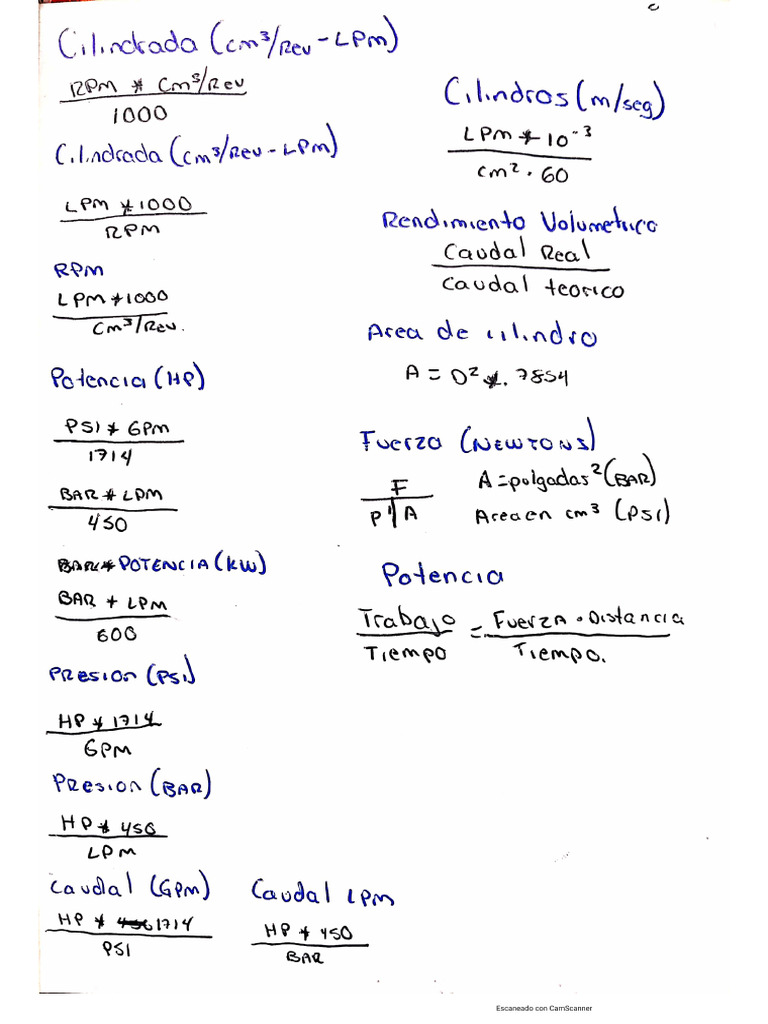 Cilindrada (cm³/Rev - LPm)
RPm * Cm³/Rev
1000
Cilindrada (cm³/Rev - LPm)
LPM * 1000
RPM
RPM
LPM * 1000
Cm³/Rev.
Potencia (HP)
PSI * GPM
1714
BAR * LPM
450
POTENCIA (KW)
BAR + LPM
600
PRESION (PSI)
HP * 1714
GPM
PRESION (BAR)
HP * 450
LPM
Caudal (GPM)
HP * 1714
PSI
Caudal LPM
HP * 450
BAR
Cilindros (m/seg)
LPM * 10⁻³
cm² · 60
Rendimiento Volumetrico
Caudal Real
Caudal teorico
Area de cilindro
A = D² * .7854
Fuerza (NEWTONS)
F
P | A
A = polgadas² (BAR)
Area en cm³ (PSI)
Potencia
Trabajo = Fuerza · Distancia
Tiempo Tiempo.
Escaneado con CamScanner